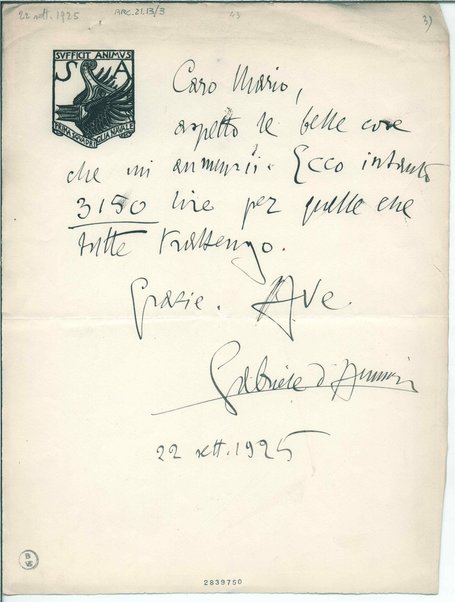 22 sett. 1925
ARC.21.13/3
43
3)
SVFFICIT ANIMVS
S A
PRIMA SQVADRIGLIA NAVALE
Caro Mario,
aspetto le belle cose
che mi annunzii. Ecco intanto
3150 lire per quelle che
tutte trattengo.
Grazie. Ave.
Gabriele d'Annunzio
22 sett. 1925
B
VE
2839750